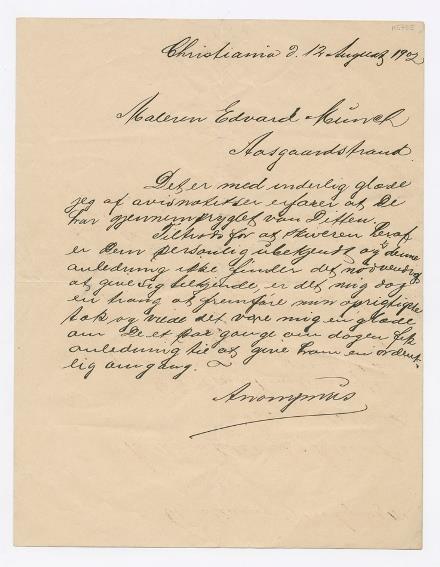 Christiania d. 12 August 1902
Maleren Edvard Munch
Aasgaardstrand.
Det er med inderlig glæde
jeg af avisnotitser erfarer at De
har gjennempryglet van Ditten.
Tiltrods for at skriveren heraf
er Dem personlig ubekjendt og i denne
anledning ikke finder det nødvendigt
at give sig tilkjende, er det mig dog
en trang at fremføre min oprigtigste
tak og vilde det være mig en glæde
om De et par gange om dagen fik
anledning til at give ham en ordent-
lig omgang.
Anonymus